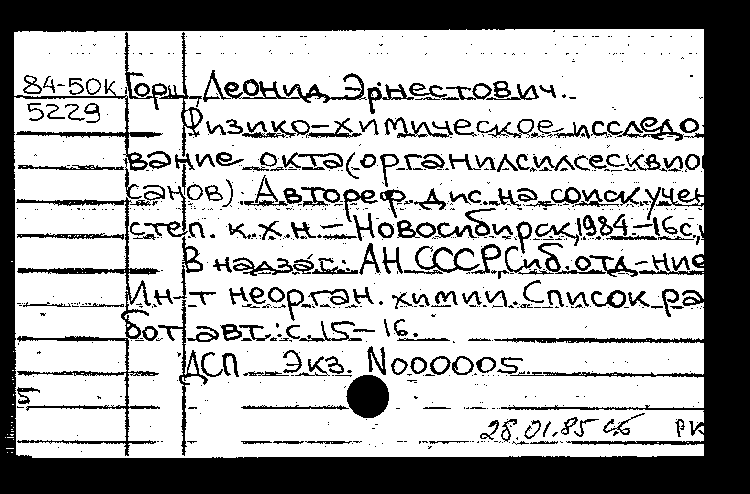 84-50к Горш Леонид Эрнестович.
5229 Физико-химическое исследо
вание окта(органилсилсесквио
санов). Автореф. дис. на соиск учен
степ. к.х.н. - Новосибирск, 1984.-16с,
В надзаг.: АН СССР, Сиб. отд-ние
Ин-т неорган. химии. Список ра
бот авт.: с. 15-16.
ДСП Экз. N000005
28.01.85 РК